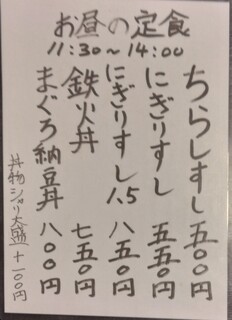 お昼の定食
11:30~14:00
ちらしずし 五〇〇円
にぎりずし 五五〇円
にぎりずし1.5 八五〇円
鉄火丼 七五〇円
まぐろ納豆丼 八〇〇円
丼物シャリ大盛+一〇〇円